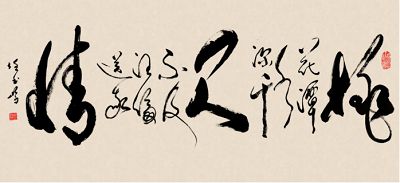 桃
花潭
水
深千
尺
不及
汪倫
送我
情